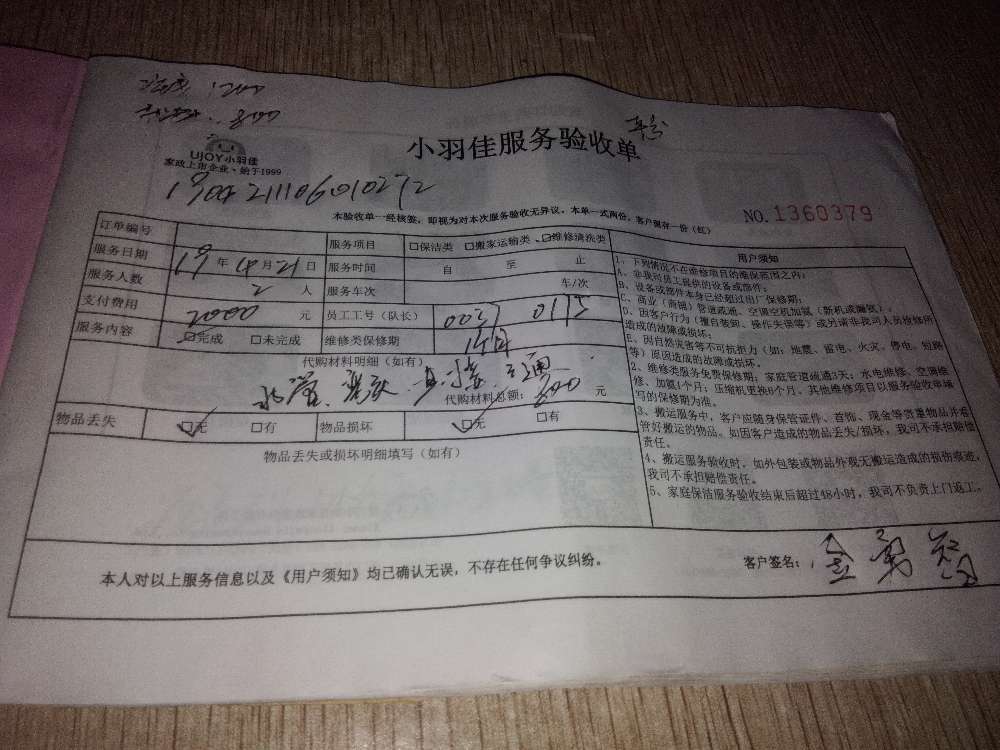 1200
800
小羽佳服务验收单
UJOY小羽佳
家政上市企业、始于1999
1904211106010272
本验收单一经核签,即视为对本次服务验收无异议,本单一式两份,客户现存一份(红)
NO.1360379
订单编号
服务项目 □保洁类 □搬家运输类、□维修清洗类
服务日期 19年4月21日 服务时间 自 至 止
服务人数 2 人 服务车次 车/次
支付费用 2000 元 员工工号(队长) 0037 0115
服务内容 □完成 □未完成 维修类保修期
代购材料明细(如有)
水管
代购材料总额: 800 元
物品丢失 □无 □有 物品损坏 □无 □有
物品丢失或损坏明细填写(如有)
用户须知
1、下列情况不在维修项目的维保范围之内:
A、非我司员工提供的设备或部件;
B、设备或部件本身已经超过出厂保修期;
C、商业(商铺)管道疏通、空调空机加氟(新机或漏氟);
D、因客户行为(擅自装卸、操作失误等)或另请非我司人员检修所
造成的故障或损坏;
E、因自然灾害等不可抗拒力(如:地震、雷电、火灾、停电、短路
等)原因造成的故障或损坏。
2、维修类服务免费保修期:家庭管道疏通3天;水电维修、空调维
修、加氟1个月;压缩机更换6个月,其他维修项目以服务验收单填
写的保修期为准。
3、搬运服务中,客户应随身保管证件、首饰、现金等贵重物品并看
管好搬运的物品。如因客户造成的物品丢失/损坏,我司不承担赔偿
责任。
4、搬运服务验收时,如外包装或物品外观无搬运造成的损伤痕迹,
我司不承担赔偿责任。
5、家庭保洁服务验收结束后超过48小时,我司不负责上门返工。
本人对以上服务信息以及《用户须知》均已确认无误,不存在任何争议纠纷。
客户签名: